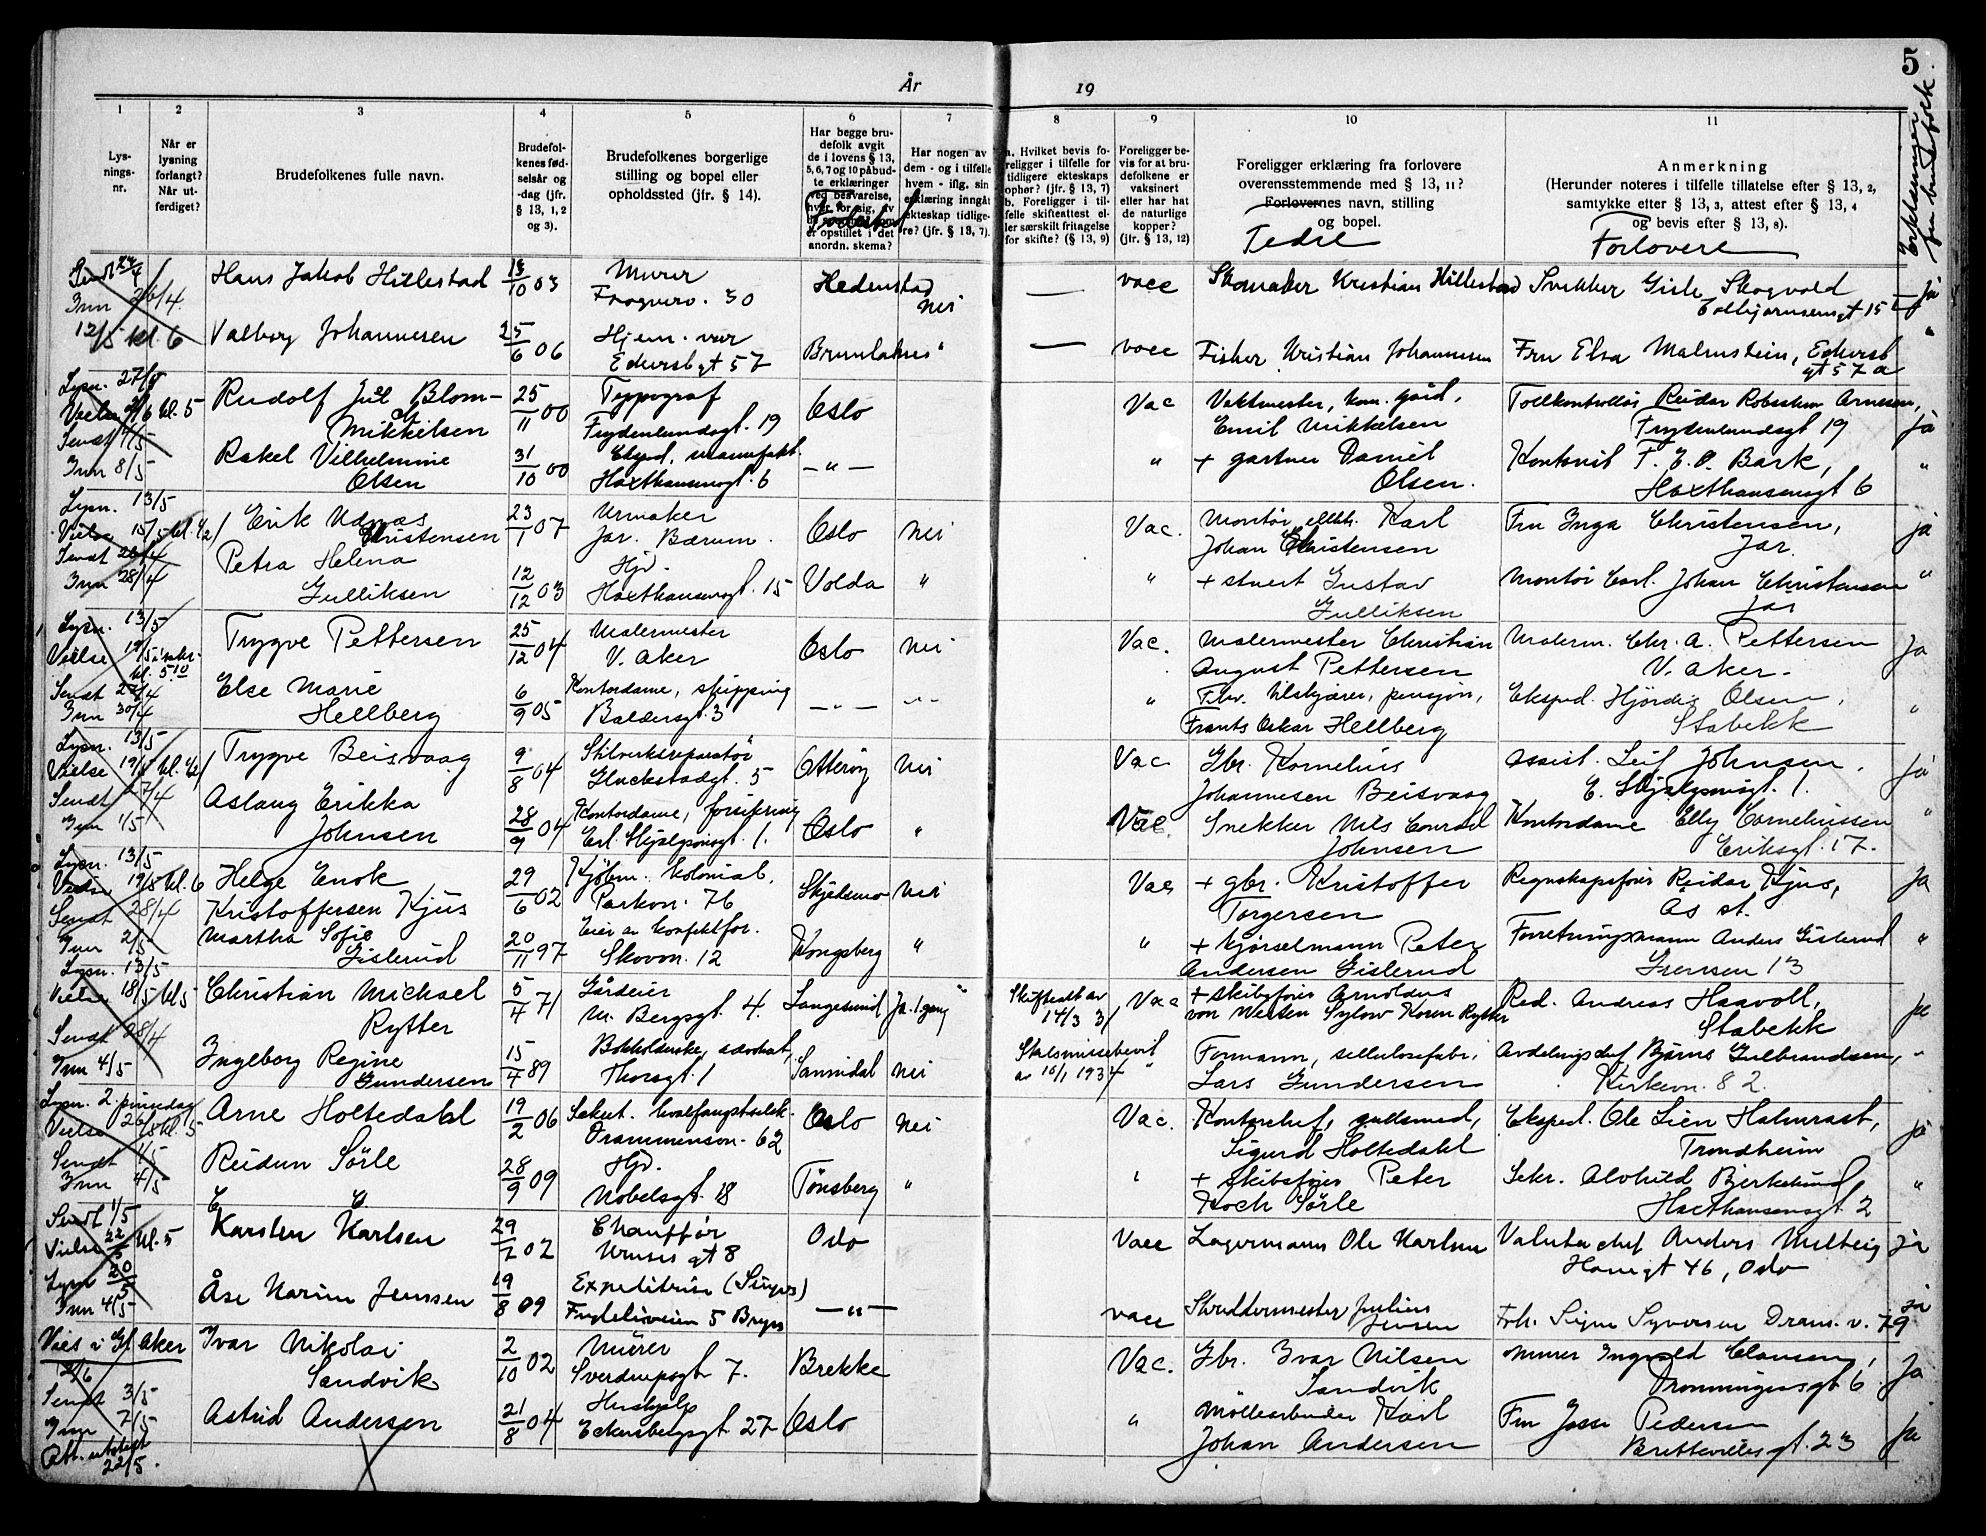 5
År
19
Erklæringer fra brudefolk.
1
2
3
4
5
6
7
8
9
10
11
Lys-
nings-
nr.
Når er
lysning
forlangt?
Når ut-
ferdiget?
Brudefolkenes fulle navn.
Brudefol-
kenes fød-
selsår og
-dag (jfr.
§ 13, 1, 2
og 3).
Brudefolkenes borgerlige
stilling og bopel eller
opholdssted (jfr. § 14).
Har begge bru-
defolk avgit
de i lovens § 13,
5, 6, 7 og 10 påbud-
te erklæringer
ved besvarelse,
hver for sig, av
er opstillet i det
anordn. skema?
Fødested
Har nogen av
dem - og i tilfelle
hvem - iflg. sin
erklæring inngått
ekteskap tidlige-
re? (jfr. § 13, 7).
a. Hvilket bevis fo-
religger i tilfelle for
tidligere ekteskaps
ophør? (jfr. § 13, 7)
b. Foreligger i til-
felle skifteattest el-
ler særskilt fritagelse
for skifte? (§ 13, 9)
Foreligger be-
vis for at bru-
defolkene er
vaksinert
eller har hat
de naturlige
kopper?
(jfr. § 13, 12)
Foreligger erklæring fra forlovere
overensstemmende med § 13, 11?
Forlovernes navn, stilling
og bopel.
Fedre
Anmerkning
(Herunder noteres i tilfelle tillatelse efter § 13, 2,
samtykke efter § 13, 3, attest efter § 13, 4
og bevis efter § 13, 8).
Forlovere
Sendt 24/4
Inn 26/4.
12/5 kl. 6
Hans Jakob Hillestad 13/10 03 Murer
Frognerv. 30 Hedenstad nei — vacc Skomaker Kristian Hillestad Snekker Gisle Skogvold
Torbjørnsensgt 15 Ja
Valborg Johannesen 25/6 06 Hjem. vær
Edersbgt 57 Brunlanes " — vacc Fisker Kristian Johannesen Fru Elsa Malmstein, Eckersb
gt 57 a "
Lysn. 27/5
Vielse 2/6 kl. 5
Sendt 4/5
Inn 8/5
Rudolf Juel Blom-
Mikkelsen 25/11 00 Typograf
Frydenlundsgt. 19 Oslo Vac Vaktmester, kom. gård,
Emil Mikkelsen Tollkontrollør Reidar Robertson Arnesen,
Frydenlundsgt 19 ja
Rakel Vilhelmine
Olsen 31/10 00 Eksped. manufakt.
Haxthausensgt. 6 — " — " + gartner Daniel
Olsen. Kontorist T. E. P. Bark,
Haxthausensgt 6 "
Lysn. 13/5
Vielse 15/5 kl. 1/2 1
Sendt 26/4
Inn 28/4
Erik Udnæs
Christensen 23/1 07 Urmaker
Jar. Bærum. Oslo nei Vac. Montør, elektr. Karl
Johan Christensen Fru Inga Christensen,
Jar. ja
Petra Helena
Gulliksen 12/12 03 Hjv.
Haxthausensgt. 15 Volda " " + stuert Gustav
Gulliksen Montør Carl Johan Christensen
Jar "
Lysn. 13/5
Vielse 19/5
kl. 5.10
Sendt 27/4
Inn 30/4
Trygve Pettersen 25/12 04 Malermester
V. Aker Oslo nei Vac. Malermester Christian
August Pettersen Malerm. Chr. A. Pettersen
V. Aker. Ja
Else Marie
Hellberg 6/9 05 Kontordame, shipping
Baldersgt. 3 — " — " " Frants Oskar Hellberg Eksped. Hjørdis Olsen,
Stabekk "
Lysn. 13/5
Vielse 19/5 kl. 1/2 1
Sendt 27/4
Inn 1/5
Trygve Beisvaag 9/8 04 Skilverksreparatør
Gluckstadgt. 5 Otterøy nei Vac Gbr. Kornelius
Johannesen Beisvaag Assist. Leif Johnsen,
E. Skjalgsonsgt. 1. ja
Aslaug Erikka
Johnsen 28/9 04 Kontordame, forsikring
Erl. Skjalgsonsgt. 1. Oslo " Vac. Snekker Nils Conrad
Johnsen Kontordame Elly Corneliussen
Eriksgt. 17. "
Lysn. 13/5
Vielse 19/5 kl. 6
Sendt 28/4
Inn 2/5
Helge Enok
Kristoffersen Kjus 29/6 02 Kjøbm. kolonial,
Parkvn. 76 Skjelsmo nei Vac + gbr. Kristoffer
Torgersen Regnskapsfører Reidar Kjus,
Ås st. Ja
Martha Sofie
Gislerud 20/11 97 Eier av konfektfor.
Skovvn. 12 Kongsberg " " + kjørselmann Peter
Andersen Gislerud Forretningsmann Anders Gislerud
Grensen 13 "
Lysn. 13/5
Vielse 18/5 kl 5
Sendt 28/4
Inn 4/5
Christian Michael
Rytter 5/4 71 Gårdeier
M. Bergsgt. 4. Langesund Ja. 1. gang Skifteatt av
14/3 31 Vac + skibsfører Arnoldus
von Westen Sylow Koren Rytter Red. Andreas Haavoll,
Stabekk ja
Ingeborg Regine
Gundersen 15/4 89 Bokholderske, advokat,
Thorsgt. 1 Sannidal nei Skilsmissebevil
av 16/1 1934 " Formann, cellulosefabr.
Lars Gundersen Avdelingschef Bjarne Gulbrandsen,
Kirkevn. 82. "
Lysn. 2. pinsedag
Vielse 26/5 kl. 5
Sendt 1/5
Inn 4/5
Arne Holtedahl 19/2 06 Sekret. hvalfangstselsk.
Drammensvn. 62 Oslo nei Vac. Kontorchef, gullsmed,
Sigurd Holtedahl Eksped. Ole Lien Halmrast,
Trondheim ja
Reidun Sörle 28/9 09 Hjv.
Nobelsgt. 18 Tönsberg " " + skibsfører Peter
Koch Sörle Sekr. Alvhild Bjerkelund
Haxthausensgt. 2 "
Sendt 1/5
Vielse 22/5 kl. 5
Lysn 20/5
Inn 4/5
Karsten Karlsen 29/7 02 Chauffør
Kruses gt 8 Oslo Vacc Lagermann Ole Karlsen Valuta chef Anders Melteig
Havegt 46, Oslo ja
Åse Karin Jenssen 19/8 09 Expeditrise (Singers)
Fridelisveien 5 Bryn — " — vacc Skreddermester Julius
Jensen Frk. Signe Syversen Dram. v. 79 ja
Vies i Gl. Aker
2/6
Sendt 3/5
Inn 7/5
Att. utstedt
22/5.
Ivar Nikolai
Sandvik 2/10 02 Murer
Sverdrupsgt 7. Brekke Vac. Gbr. Ivar Nilsen
Sandvik Murer Ingvald Clausen,
Dronningensgt 6. Ja
Astrid Andersen 21/8 04 Hushjelp
Eckersbergsgt 27 Oslo " Møllearbeider Karl
Johan Andersen Fru Josse Pedersen
Brettevilles gt. 23 Ja